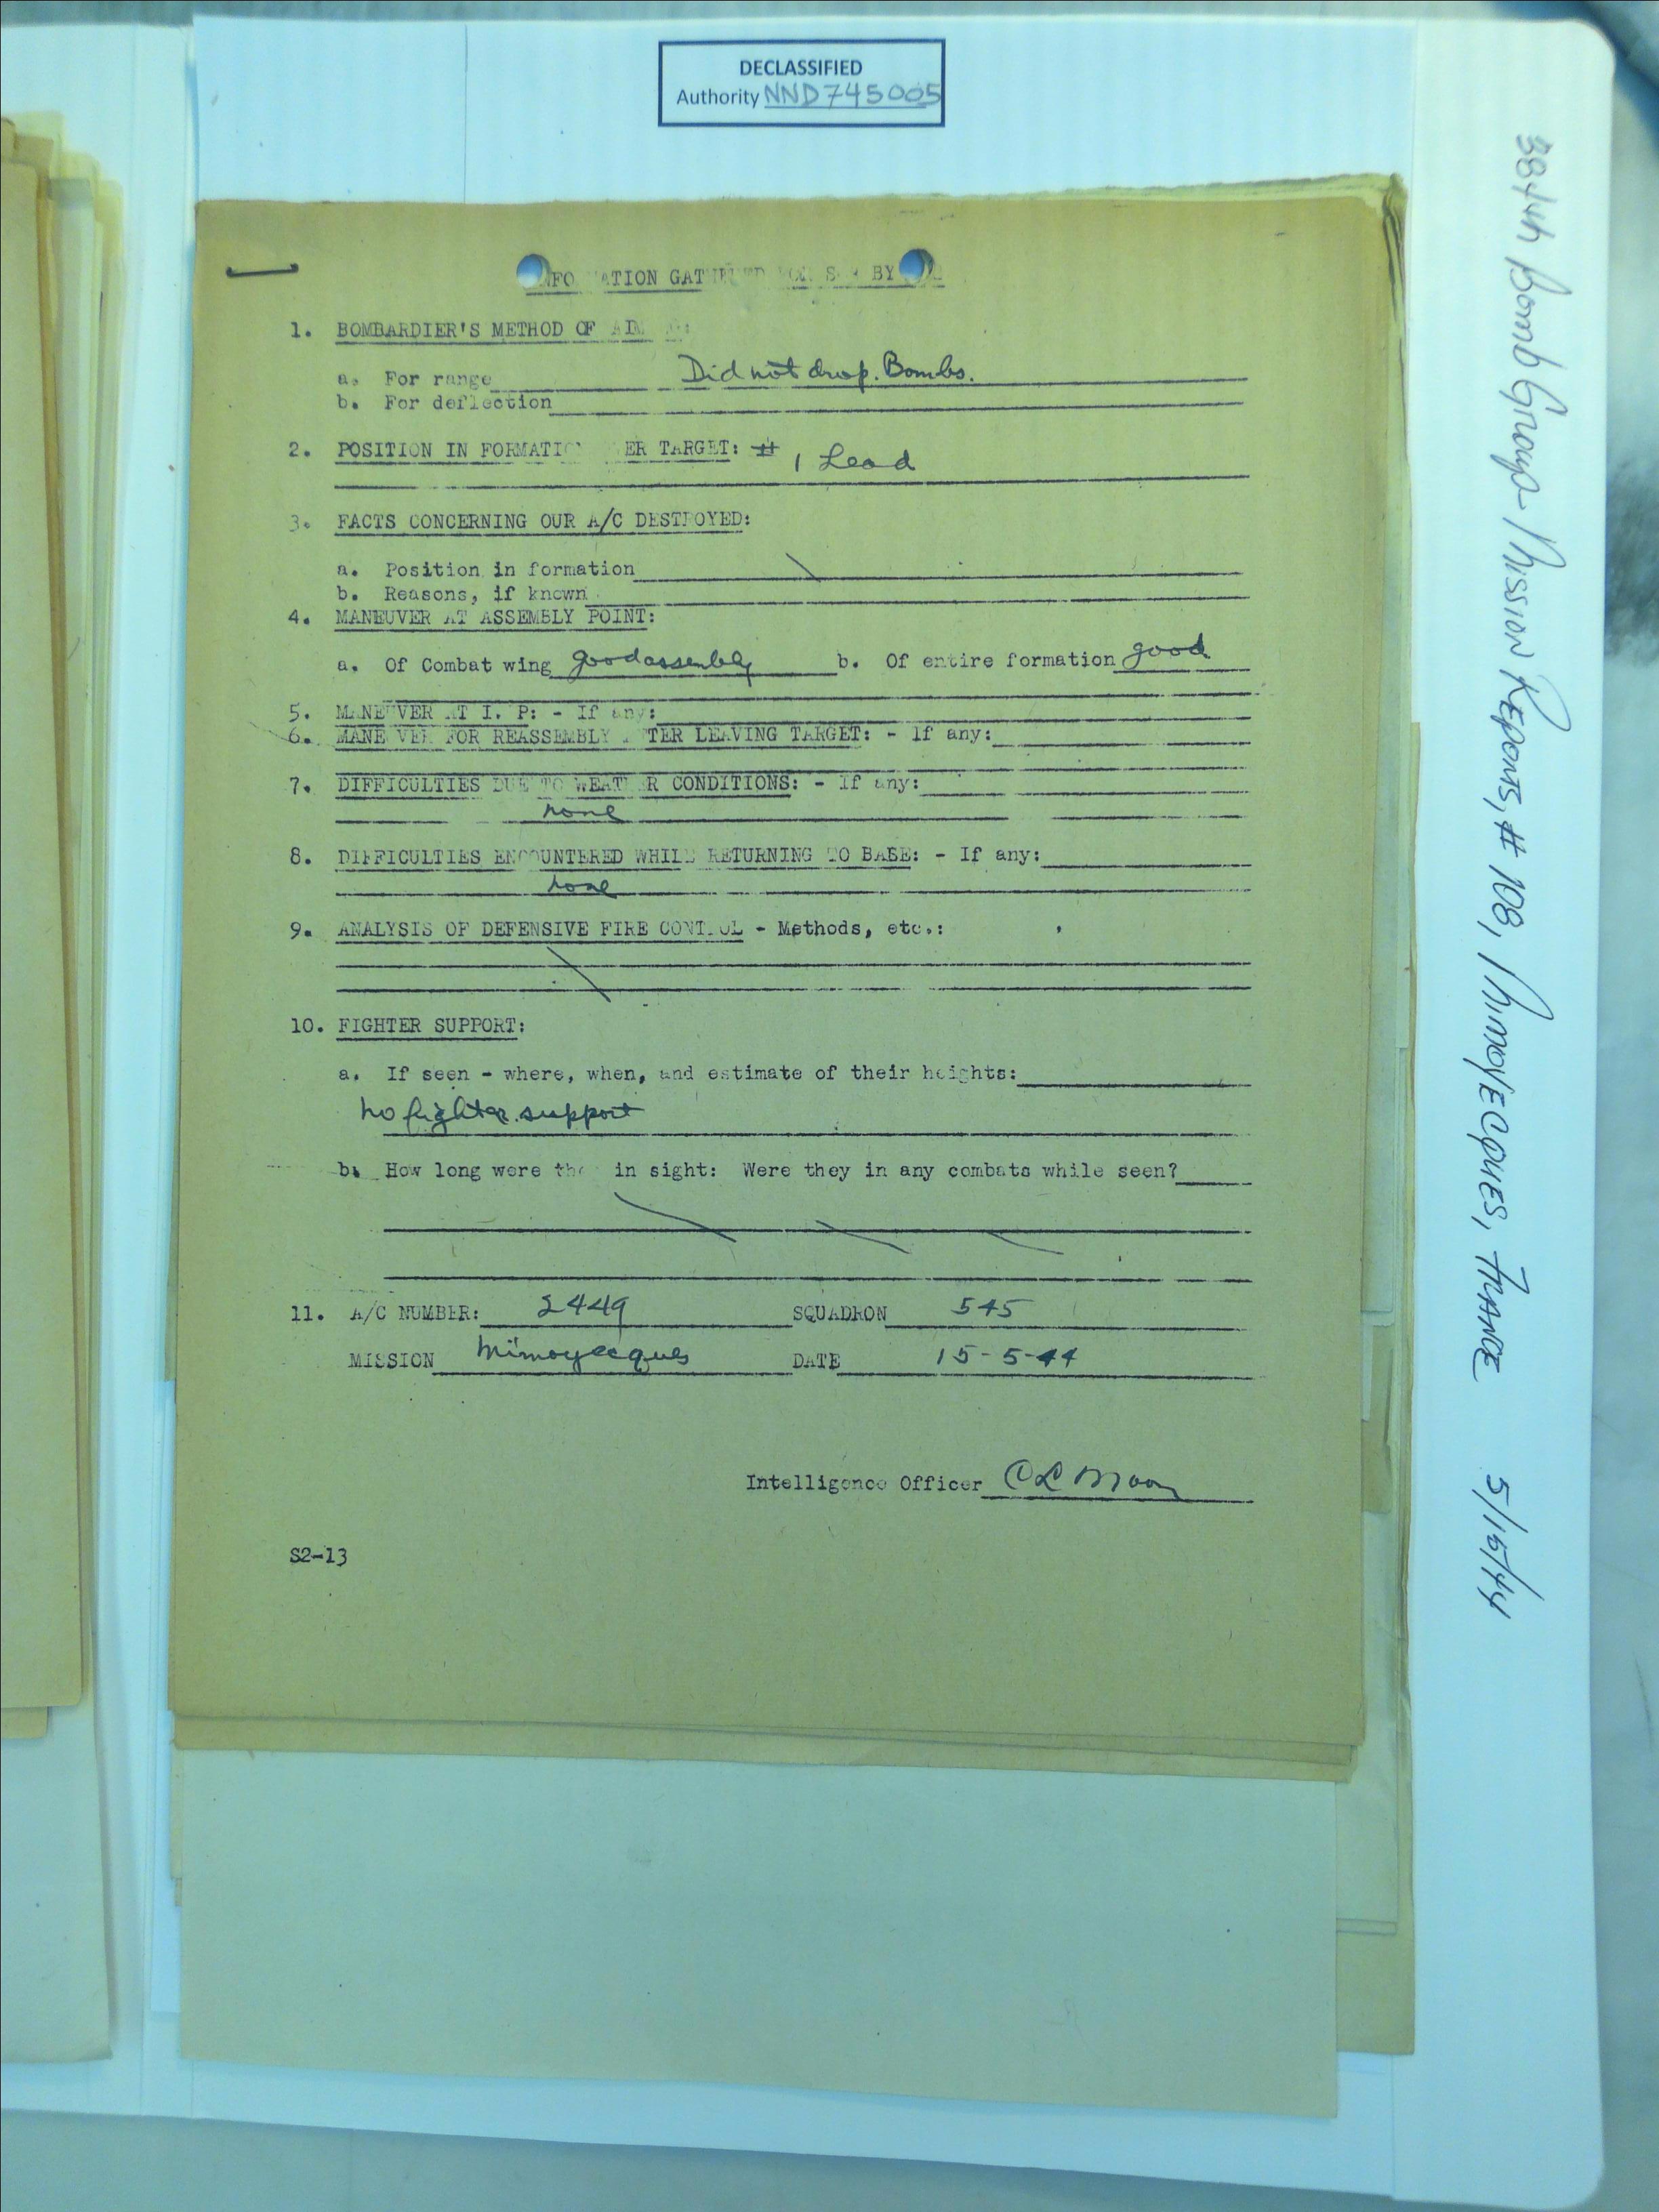 DECLASSIFIED
Authority NND745005
1. BOMBARDIER'S METHOD OF
a. For range Did not drop. Bombs.
b. For deflection
2. POSITION IN FORMATION TARGET: # 1 Lead
3. FACTS CONCERNING OUR A/C DESTROYED:
a. Position in formation
b. Reasons, if known
4. MANEUVER AT ASSEMBLY POINT:
a. Of Combat wing good assembly b. Of entire formation good
5. MANEUVER AT I. P: - If any:
6. MANEUVER FOR REASSEMBLY AFTER LEAVING TARGET: - If any:
7. DIFFICULTIES DUE TO WEATHER CONDITIONS: - If any:
none
8. DIFFICULTIES ENCOUNTERED WHILE RETURNING TO BASE: - If any:
none
9. ANALYSIS OF DEFENSIVE FIRE CONTROL - Methods, etc.:
10. FIGHTER SUPPORT:
a. If seen - where, when, and estimate of their heights:
no fighter support
b. How long were they in sight: Were they in any combats while seen?
11. A/C NUMBER: 2449 SQUADRON 545
MISSION Mimoyecques DATE 15-5-44
Intelligence Officer C L Moon
S2-13
384th Bomb Group - Mission Reports, # 108, Mimoyecques, France 5/15/44